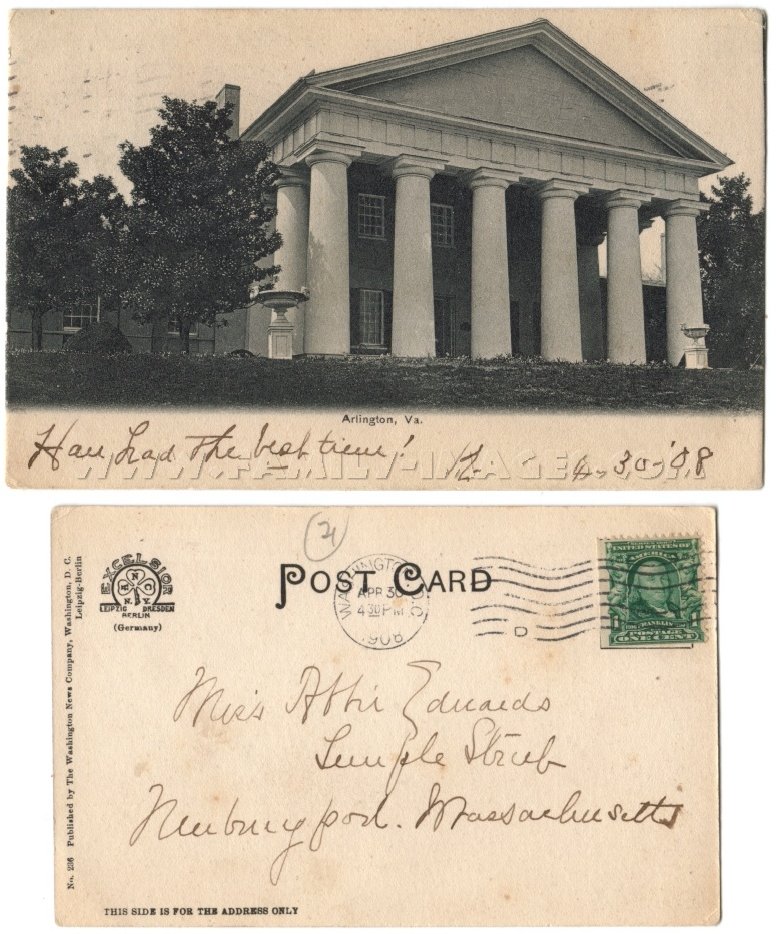 Arlington, Va.
Have had the best time! 4-30-'08
WWW.FAMILY-IMAGES.COM
POST CARD
EXCELSIOR
N. Y.
LEIPZIG DRESDEN
BERLIN
(Germany)
WASHINGTON D.C.
APR 30
4 30 PM
1908
D
UNITED STATES OF
AMERICA
FRANKLIN
POSTAGE
ONE CENT
Miss Abbie Edwards
Temple Street
Newburyport. Massachusetts
No. 236 Published by The Washington News Company, Washington, D. C.
Leipzig-Berlin
THIS SIDE IS FOR THE ADDRESS ONLY